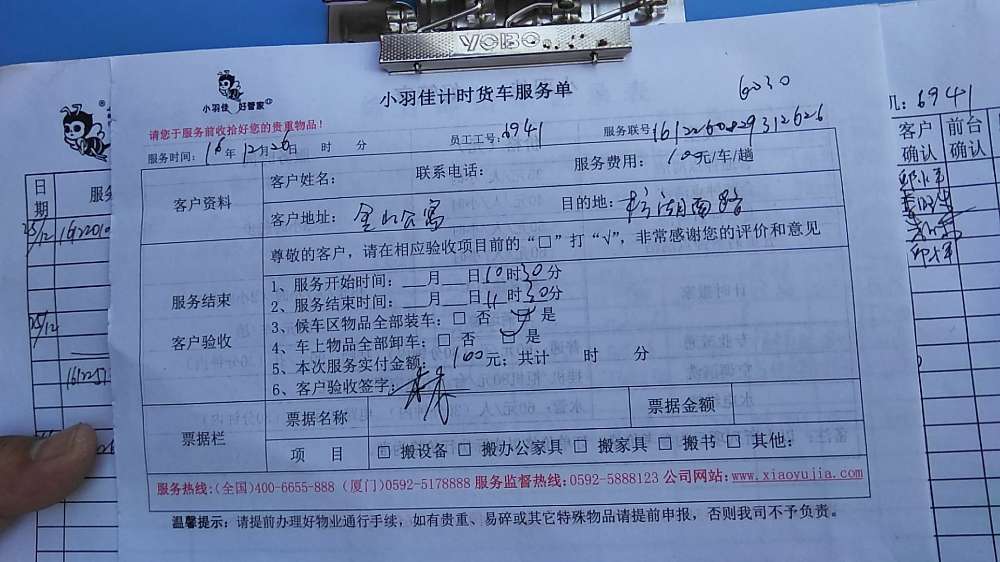 YOBO
小羽佳 好管家
小羽佳计时货车服务单
6030
请您于服务前收拾好您的贵重物品！
服务时间：16年12月26日 时 分
员工工号：6941
服务联号
客户资料
客户姓名：
联系电话：
服务费用： 元/车/趟
客户地址：金山公寓
目的地：
服务结束
客户验收
尊敬的客户，请在相应验收项目前的“□”打“√”，非常感谢您的评价和意见
1、服务开始时间：__月__日10时30分
2、服务结束时间：__月__日11时30分
3、候车区物品全部装车：□ 否 □ 是
4、车上物品全部卸车：□ 否 □ 是
5、本次服务实付金额：100元；共计 时 分
6、客户验收签字：
票据栏
票据名称
票据金额
项 目
□ 搬设备 □ 搬办公家具 □ 搬家具 □ 搬书 □ 其他：
服务热线:(全国)400-6655-888 (厦门)0592-5178888 服务监督热线:0592-5888123 公司网站:www.xiaoyujia.com
温馨提示：请提前办理好物业通行手续，如有贵重、易碎或其它特殊物品请提前申报，否则我司不予负责。
日期
服务
几：6941
客户确认
前台确认